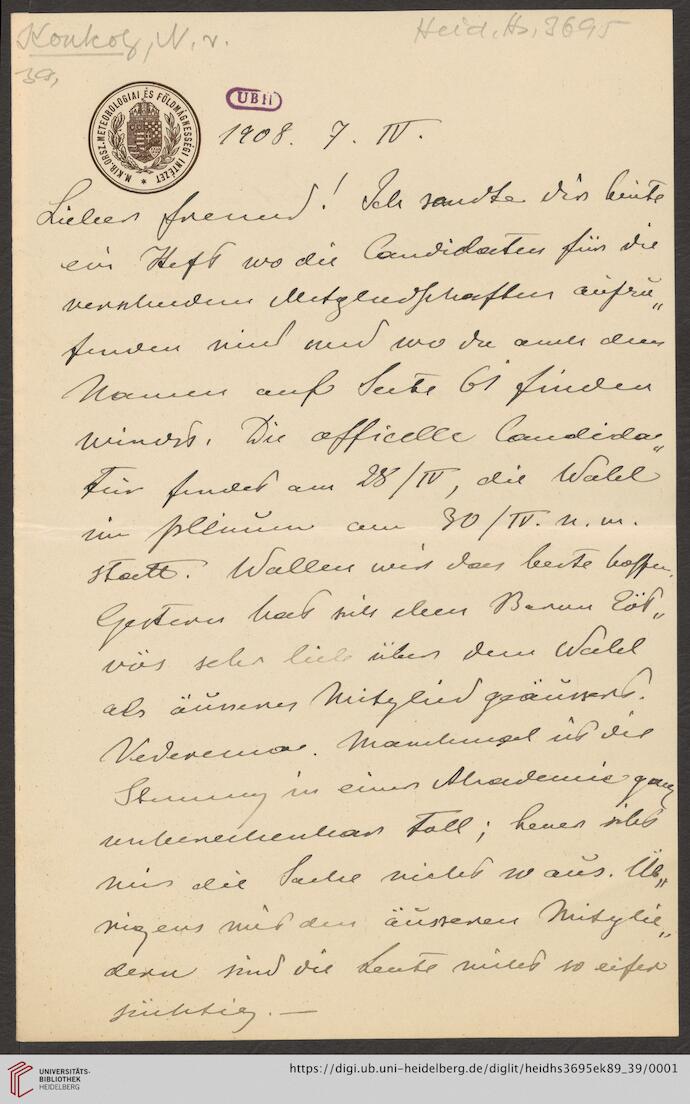 Konkoly, N. v.
Heid. Hs. 3695
39,
M. KIR. ORSZ. METEOROLOGIAI ÉS FÖLDMÁGNESSÉGI INTÉZET
UBH
1908. 7. IV.
Lieber Freund! Ich sandte dir heute
ein Heft wo die Candidaten für die
verschiedenen Mitgliedschaften aufzu„
finden sind und wo du auch deinen
Namen auf Seite 61 finden
wirst. Die officelle Candida„
tur findet am 28/IV, die Wahl
im plenum am 30/IV. n. m.
statt. Wollen wir das beste hoffen.
Gestern hat sich eben Baron Eöt„
vös sehr lieb über dem Wahl
als äusseres Mitglied geäussert.
Vederemo. Manchmal ist die
Stimmung in einer Akademie ganz
unberechenbar toll; heuer sieht
mir die Sache nicht so aus. Üb„
rigens mit den äusseren Mitglie„
dern sind die Leute nicht so eifer
süchtig. —
UNIVERSITÄTS-
BIBLIOTHEK
HEIDELBERG
https://digi.ub.uni-heidelberg.de/diglit/heidhs3695ek89_39/0001